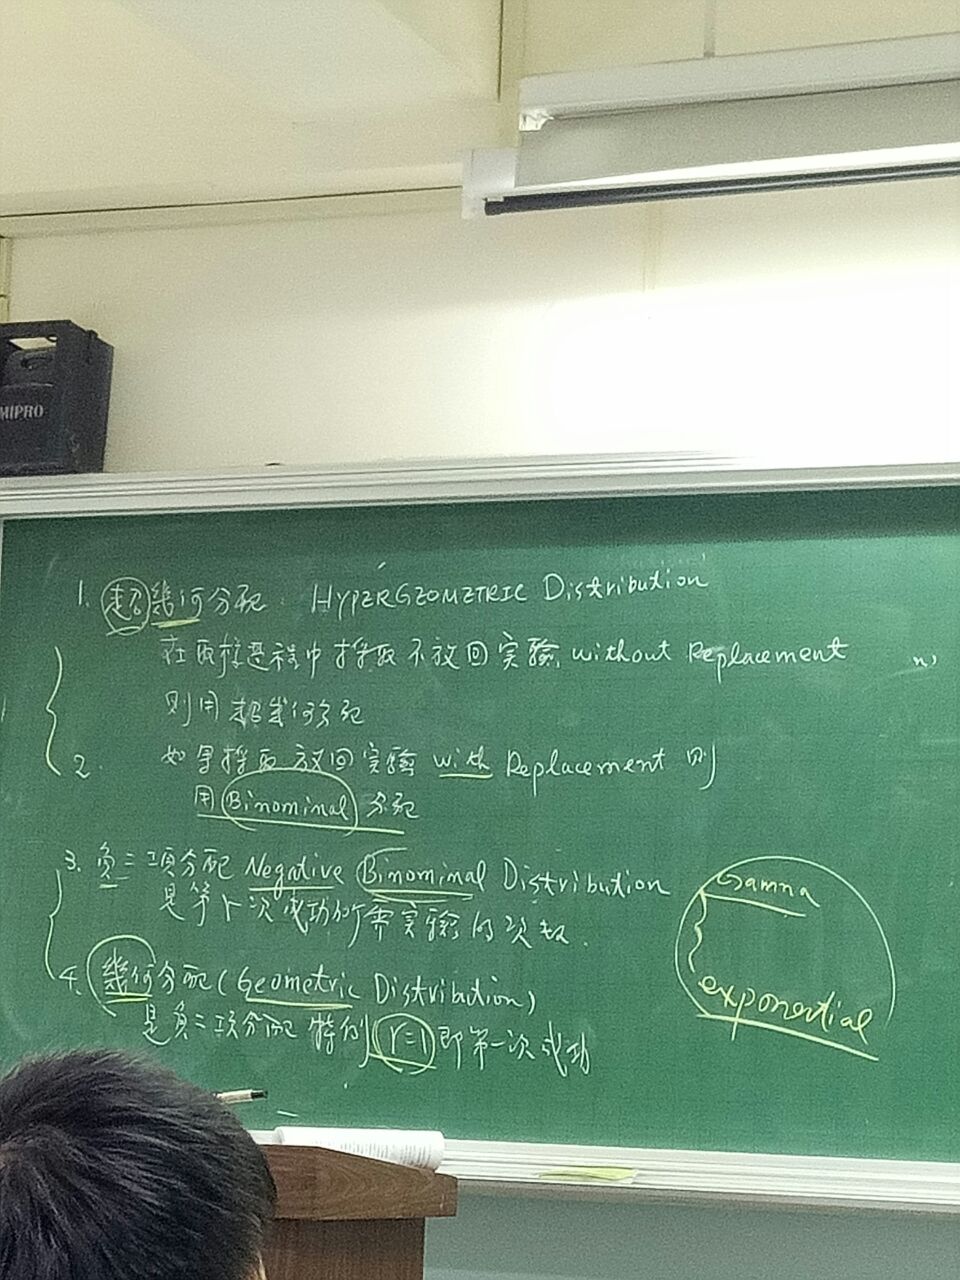 MIPRO
1. 超幾何分配. HYPERGEOMETRIC Distribution
在取樣過程中採取不放回實驗 without Replacement
則用超幾何分配
2. 如果採取放回實驗 with Replacement 則
用 Binominal 分配
3. 負二項分配 Negative Binominal Distribution
是第r次成功所需實驗的次數.
4. 幾何分配 (Geometric Distribution)
是負二項分配 特例 r=1 即第一次成功
Gamna
exponential